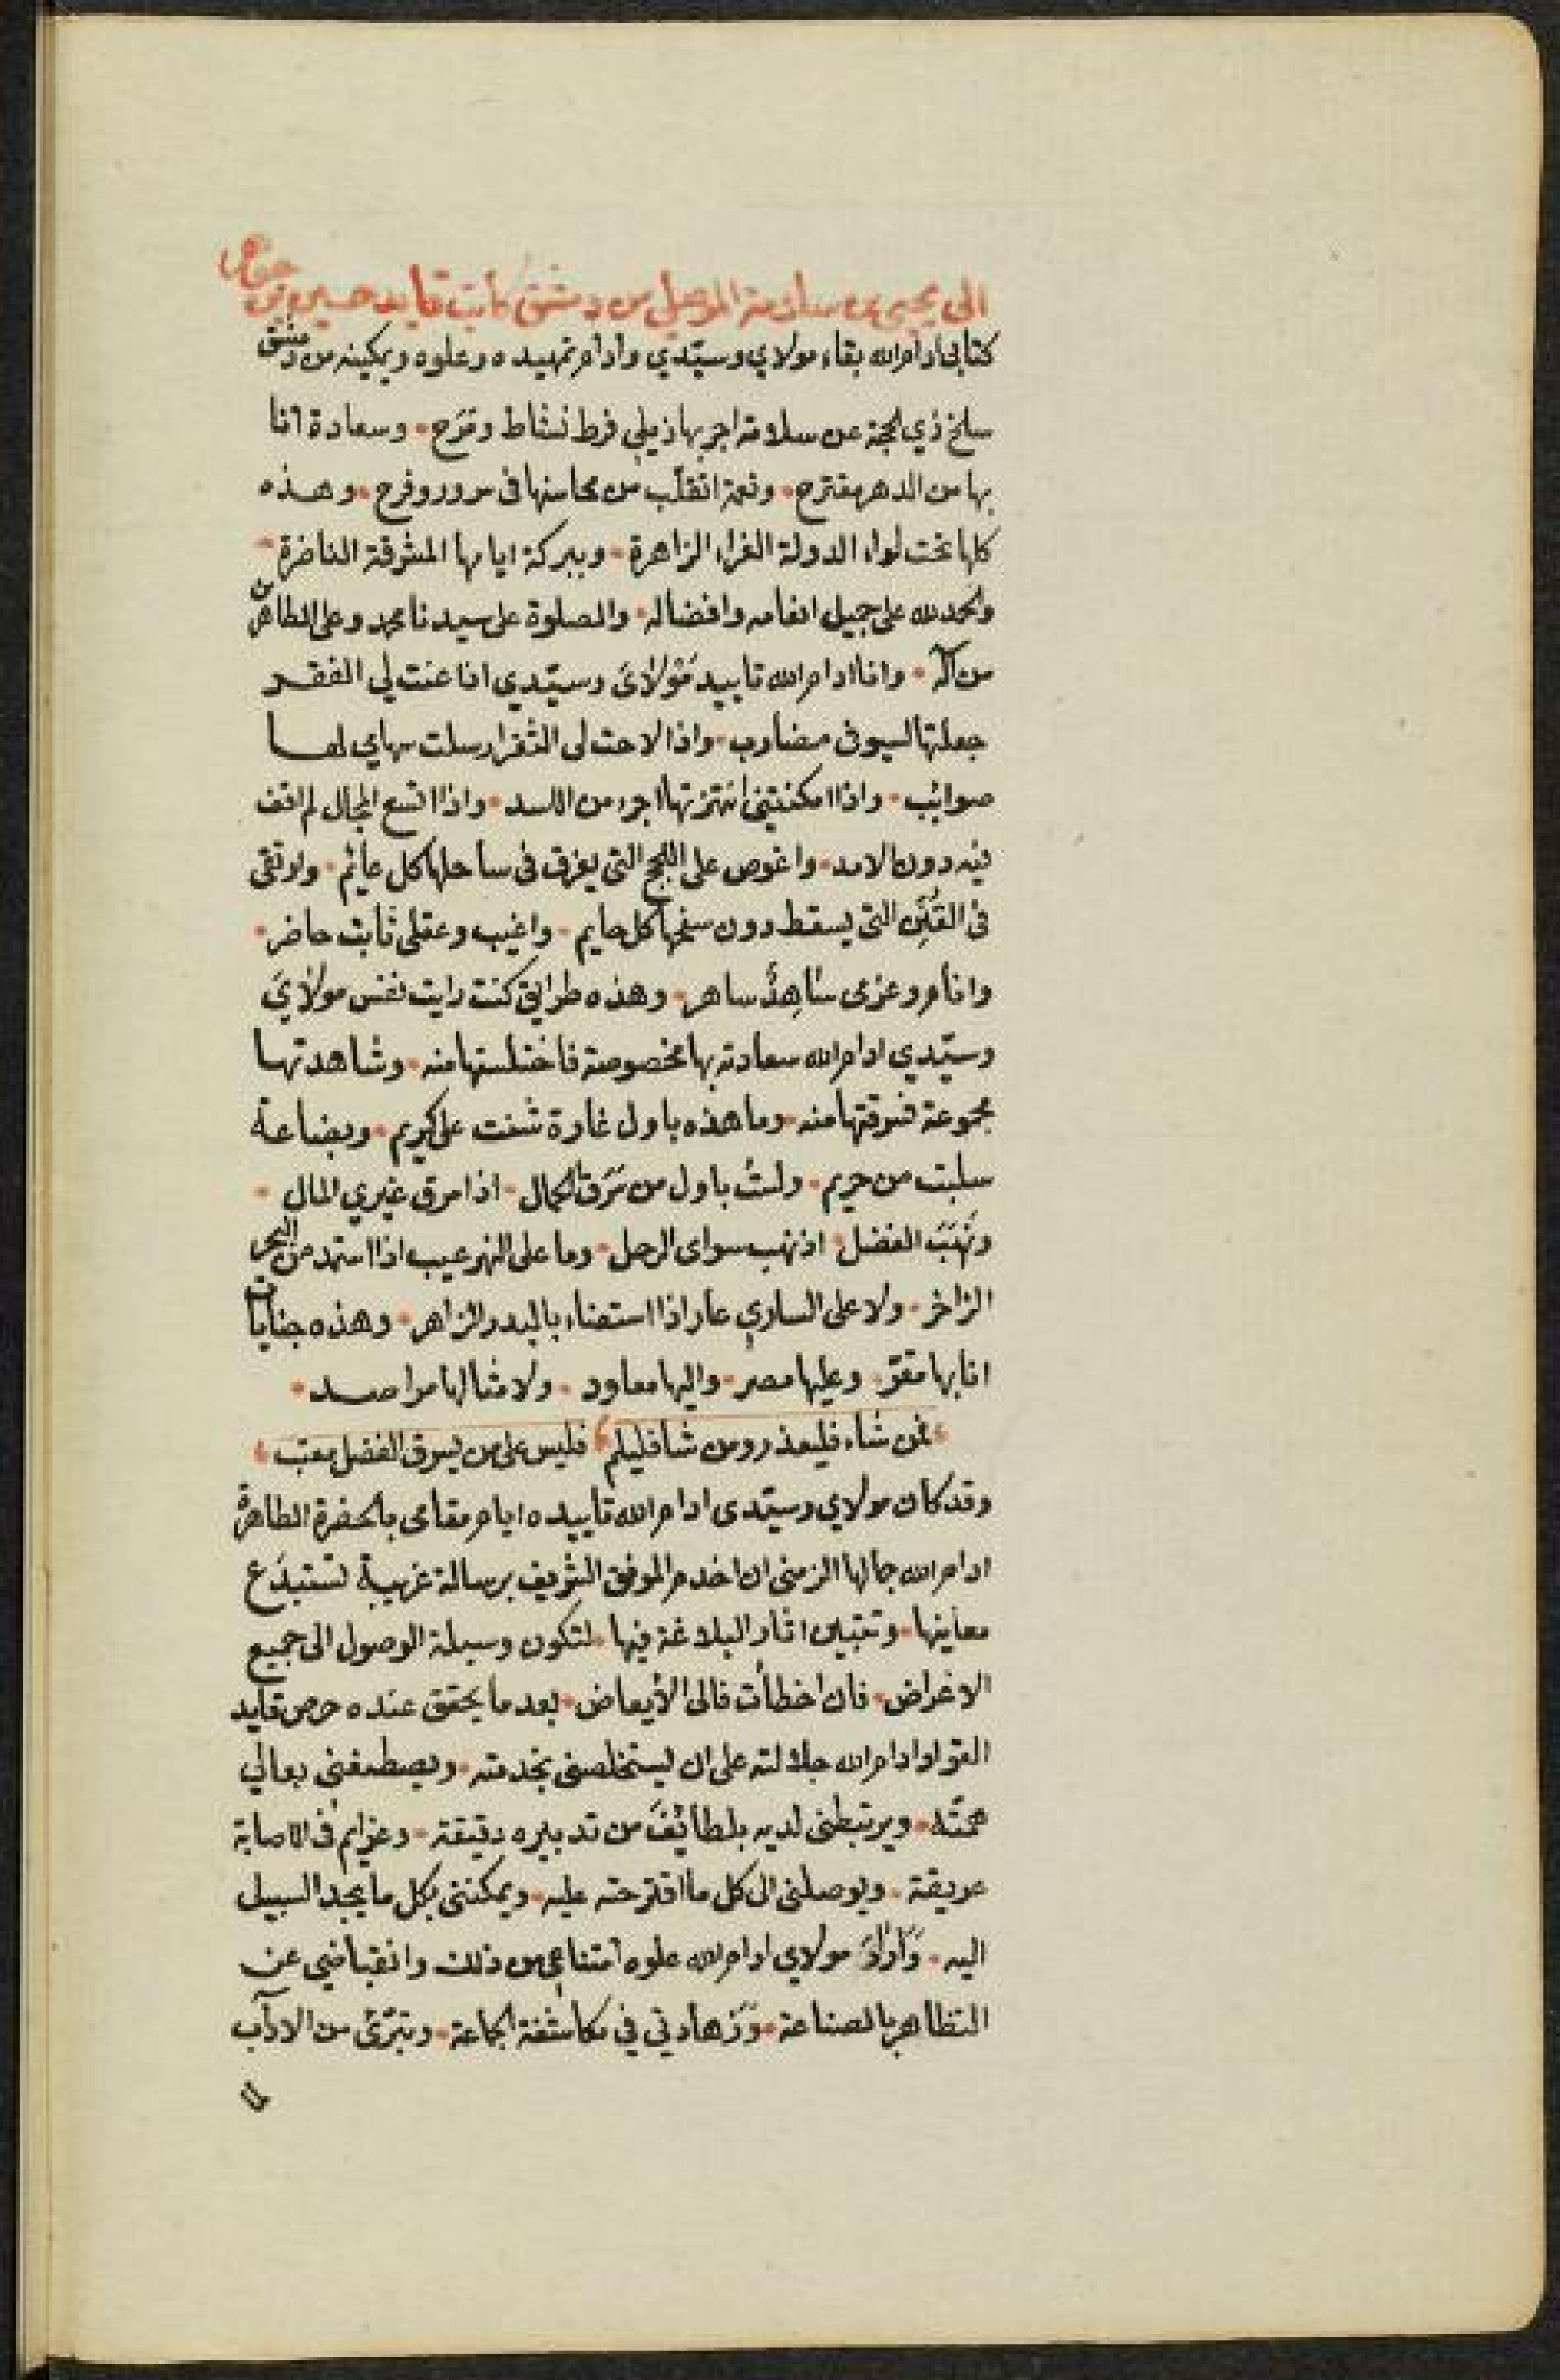 الى يحيى بن سلامة الموصلى من دمشق كاتب قايد حسين بن جوهر
كتابى ادام الله بقاء مولاي وسيّدي وادام تمهيده وعلوه وتمكينه من دمشق
سلخ ذي الحجة عن سلامة اجر بها ذيلي فرط نشاط ومَرَح وسعادة انا
بها من الدهر مقترح ونعمة اتقلّب من محاسنها فى سرور وفرح وهذه
كلها تحت لواء الدولة الغراء الزاهرة وببركة ايامها المشرقة الناضرة
والحمد لله على جميل انعامه وافضاله والصلوة على سيدنا محمد وعلى الطاهرين
من آله وانا ادام الله تاييد مَوْلاىَ وسيّدي اذا عنت لي الفقر
جعلتها لسيوفى مضارب واذا لاحت لى الثغر ارسلت سهامي لها
صوائب واذا امكنتنى انتهزتها اجرء من الاسد واذا اتسع المجال لم اقف
فيه دون الامد واغوص على اللجج التى يغرق فى ساحلها كل عائم وارتقى
فى القُنَن التى يسقط دون سفحها كل حايم واغيب وعقلى ثابت حاضر
وانام وعزمى شاهِدٌ ساهر وهذه طرايق كنت رايت نفس مولاىَ
وسيّدي ادام الله سعادته بها مخصوصة فاختلستها منه وشاهدتها
مجموعة فسرقتها منه وما هذه باول غارة شنت على كريم وبضاعة
سلبت من حريم ولستُ باول من سَرَق الكمال اذا سرق غيري المال
ونَهَبَ الفضل اذ نهب سواى الرحل وما على النهر عيب اذا استمد من البحر
الزاخر ولا على الساري عار اذا استضاء بالبدر الزاهر وهذه جنايات
انا بها مقرّ وعليها مصر واليها معاود ولامثالها مراصد
فمن شاء فليعذر ومن شا فليلم فليس على من يسرق الفضل معتب
وقد كان مولاي وسيّدى ادام الله تاييده ايام مقامى بالحضرة الطاهرة
ادام الله جمالها الزمنى ان اخدم الموفق الشريف برسالة غريبة تستبدَع
معاينها وتتبين اثار البلاغة فيها لتكون وسيلة الوصول الى جميع
الاغراض فان اخطأت فالى الأبعاض بعد ما يحقق عنده حرص قايد
القواد ادام الله جلالته على ان يستخلصنى بخدمته ويصطنعنى بعالي
همّته ويرتبطنى لديه بلطائف من تدبيره دقيقة وعزايم فى الاصابة
عريقة ويوصلنى الى كل ما اقترحته عليه ويمكننى بكل ما يجد السبيل
اليه وَأرادَ مولاي ادام الله علوه امتناعى من ذلك وانقباضي عن
التظاهر بالصناعة وَزهادتي في مكاشفة الجماعة وتبرّئى من الاداب